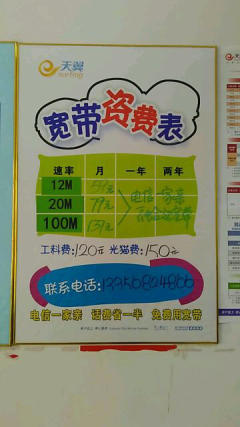 天翼
surfing
宽带资费表
速率 月 一年 两年
12M 59元
20M 79元 电信一家亲
100M 139元
工料费:120元 光猫费:150元
联系电话:
电信一家亲 话费省一半 免费用宽带